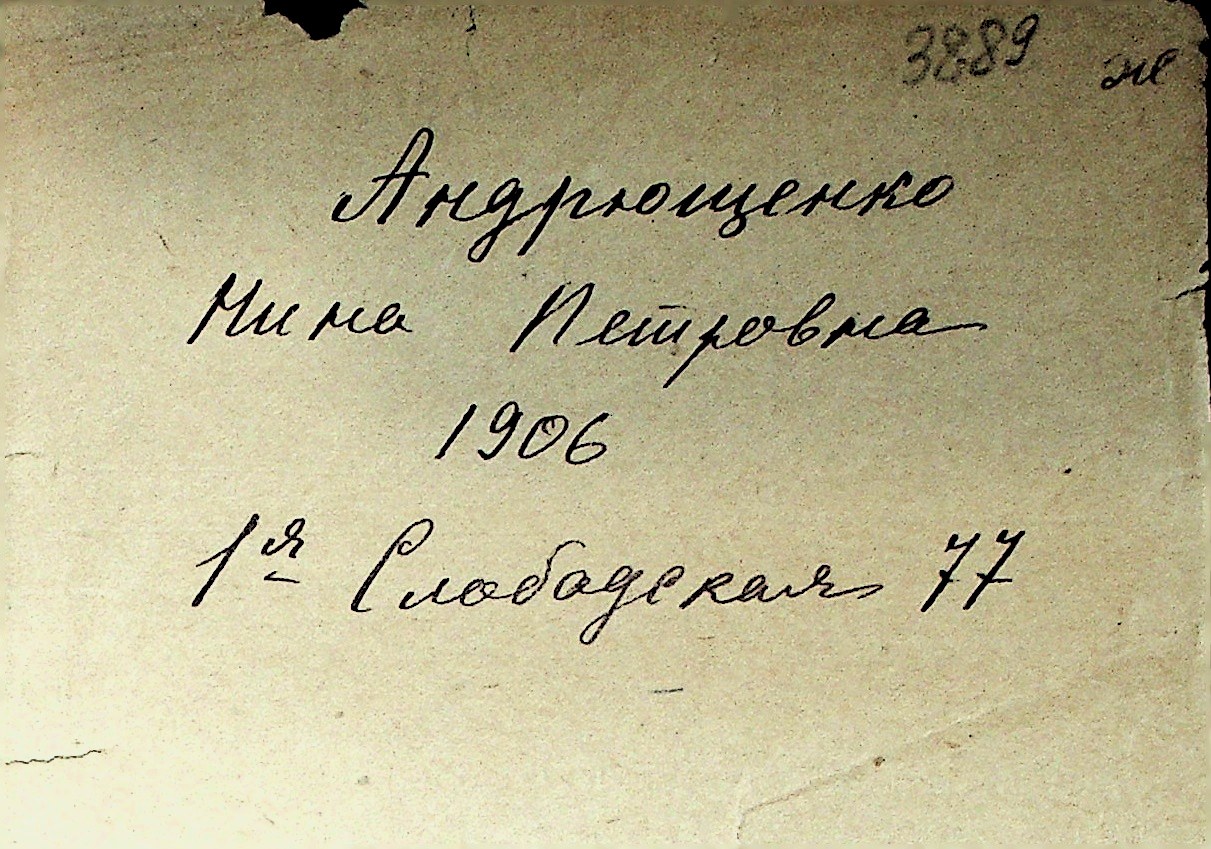 3889 ж
Андрющенко
Нина Петровна
1906
1я Слободская 77